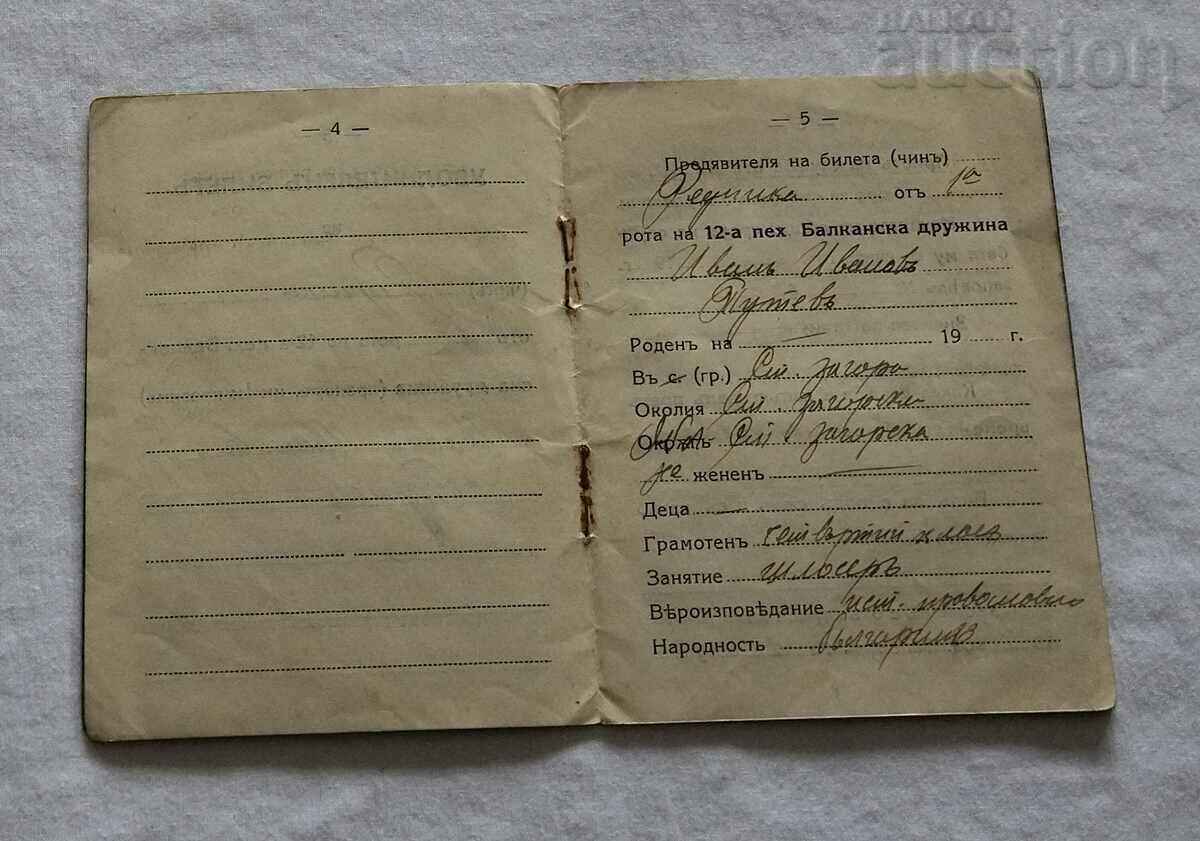 — 4 —
— 5 —
Предявителя на билета (чинъ)
Редника отъ 1а
рота на 12-а пех. Балканска дружина
Иванъ Ивановъ
Путевъ
Роденъ на — 19 г.
Въ с. (гр.) Ст. Загора
Околия Ст. Загорска
Окрѫгъ Ст. Загорска
не жененъ —
Деца —
Грамотенъ четвъртий класъ
Занятие шлосеръ
Вѣроизповѣдание ист. православно
Народность българинъ
auction